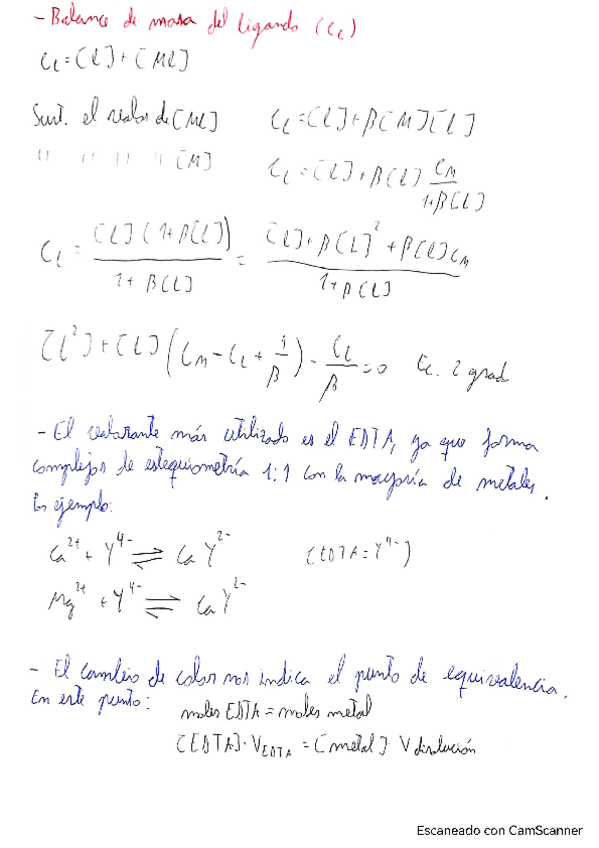 - Balance de masa del ligando (CL)
CL = [L] + [ML]
Sust. el valor de [ML] CL = [L] + β[M][L]
" " " " [M] CL = [L] + β[L] CM / 1+β[L]
CL = [L](1+β[L]) / 1+β[L] = [L]+β[L]² + β[L]CM / 1+β[L]
[L²] + [L](CM - CL + 1/β) - CL/β = 0 Ec. 2 grado
- El valorante más utilizado es el EDTA, ya que forma
complejos de estequiometría 1:1 con la mayoría de metales.
En ejemplo:
Ca²⁺ + Y⁴⁻ ⇌ CaY²⁻ [EDTA = Y⁴⁻]
Mg²⁺ + Y⁴⁻ ⇌ CaY²⁻
- El cambio de color nos indica el punto de equivalencia.
En este punto: moles EDTA = moles metal
[EDTA]·VEDTA = [metal]·V disolución
Escaneado con CamScanner